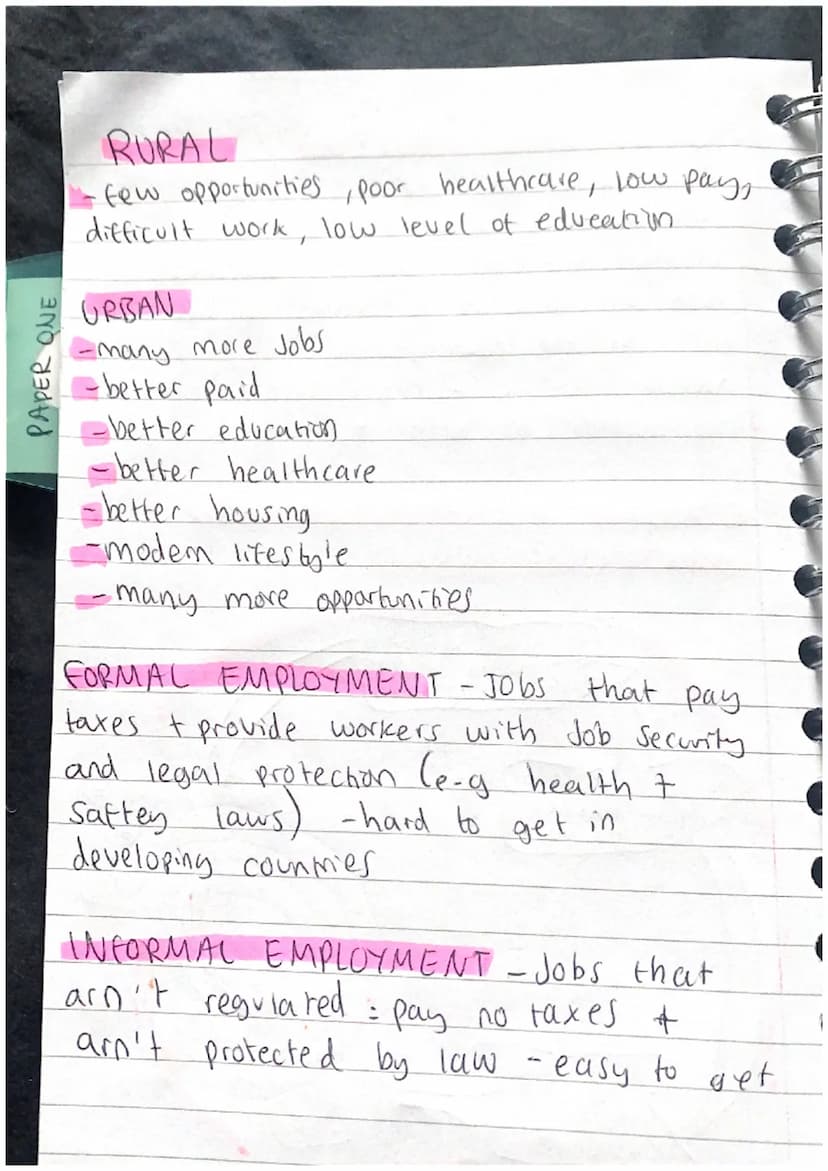 RURAL
- few opportunities, poor healthcare, low pay,
difficult work, low level of education
PAPER ONE
URBAN
- many more Jobs
- better paid
- better education
- better healthcare
- better housing
- modern lifestyle
- many more opportunities
FORMAL EMPLOYMENT - JObs that pay
taxes + provide workers with Job security
and legal protection (e-g health +
saftey laws) - hard to get in
developing countries
INFORMAL EMPLOYMENT - Jobs that
arn't regulared : pay no taxes +
arn't protected by law - easy to get